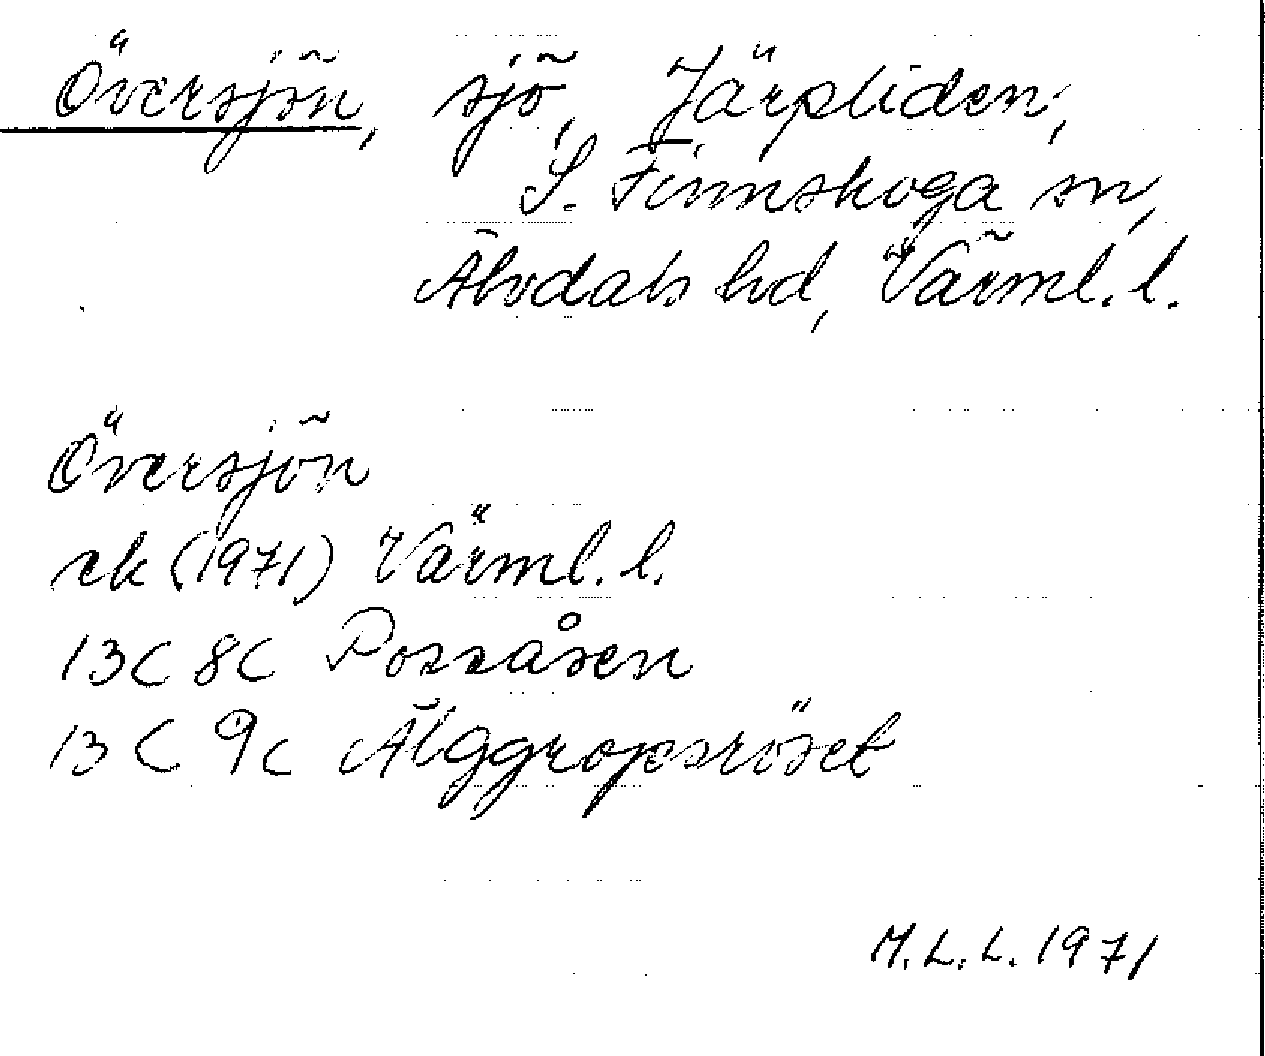 Översjön, sjö, Järpliden,
S. Finnskoga sn,
Älvdals hd, Värml. l.
Översjön
ek (1971) Värml. l.
13C 8C Possåsen
13C 9c Älggropsröset
M.L.L. 1971